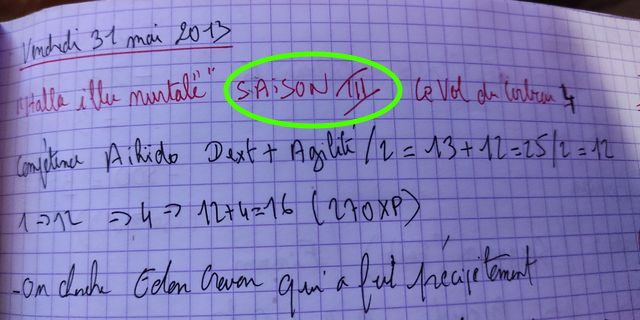 Vendredi 31 mai 2013
SAISON III Le Vol du
Compétence Aikido Dext + Agilité / 2 = 13 + 12 = 25/2 = 12
1 → 12 ⇒ 4 → 12 + 4 = 16 (270XP)
- On cherche Eden Craven qui a fui précipitement